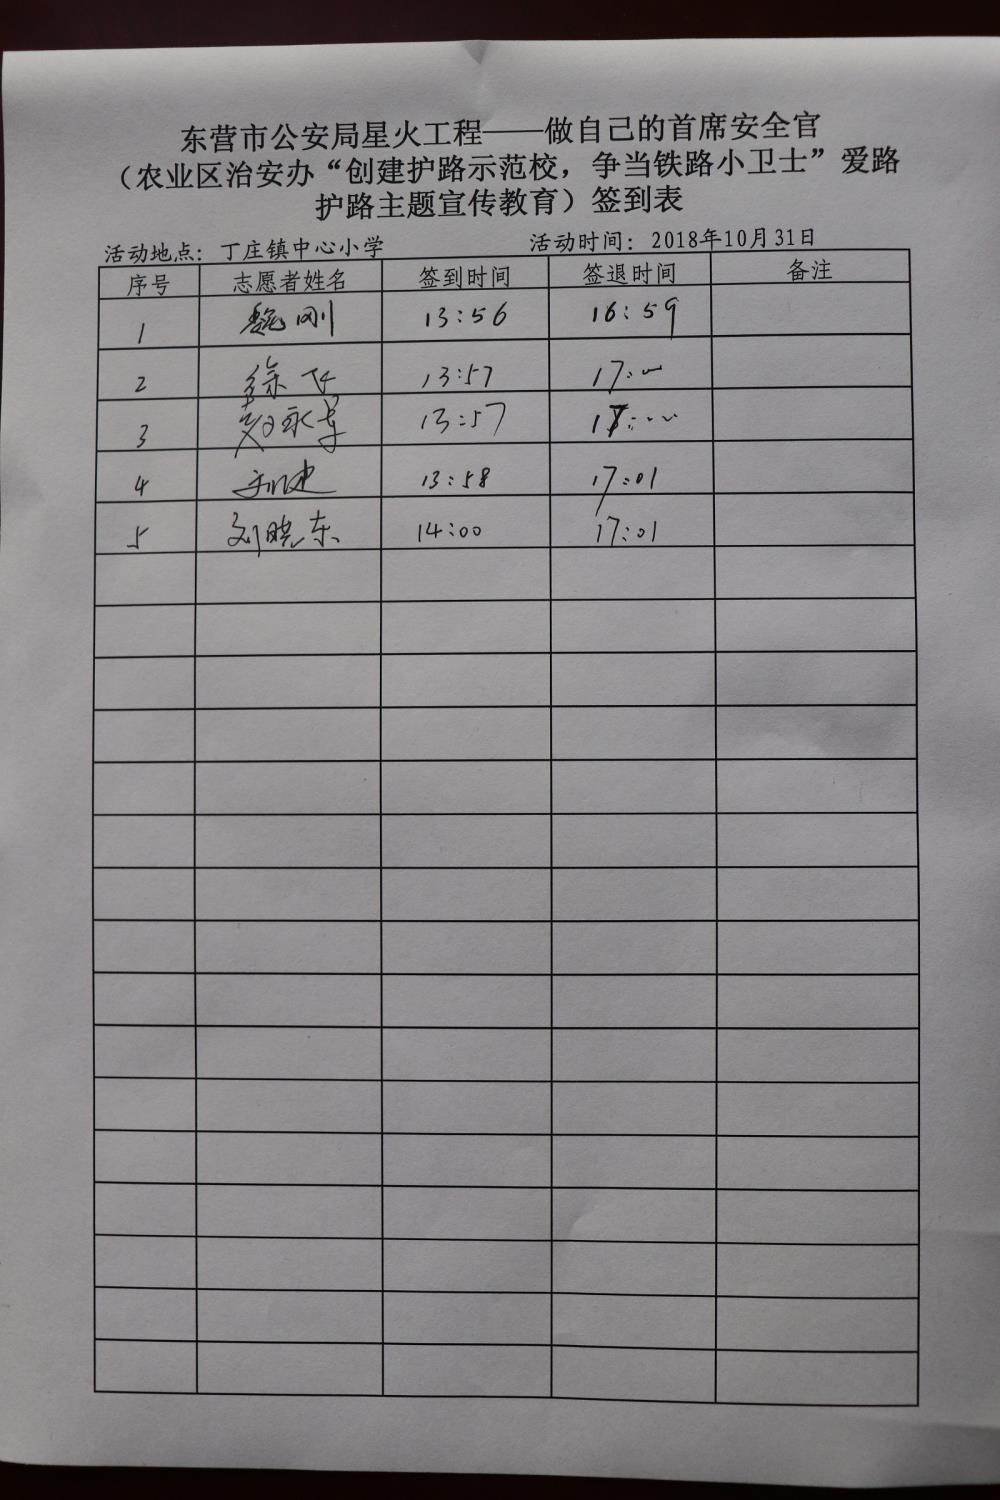 东营市公安局星火工程——做自己的首席安全官
（农业区治安办“创建护路示范校，争当铁路小卫士”爱路
护路主题宣传教育）签到表
活动地点：丁庄镇中心小学 活动时间：2018年10月31日
序号 志愿者姓名 签到时间 签退时间 备注
1 魏刚 13:56 16:59
2 徐飞 13:57 17:00
3 赵永 13:57 17:00
4 建 13:58 17:01
5 刘晓东 14:00 17:01